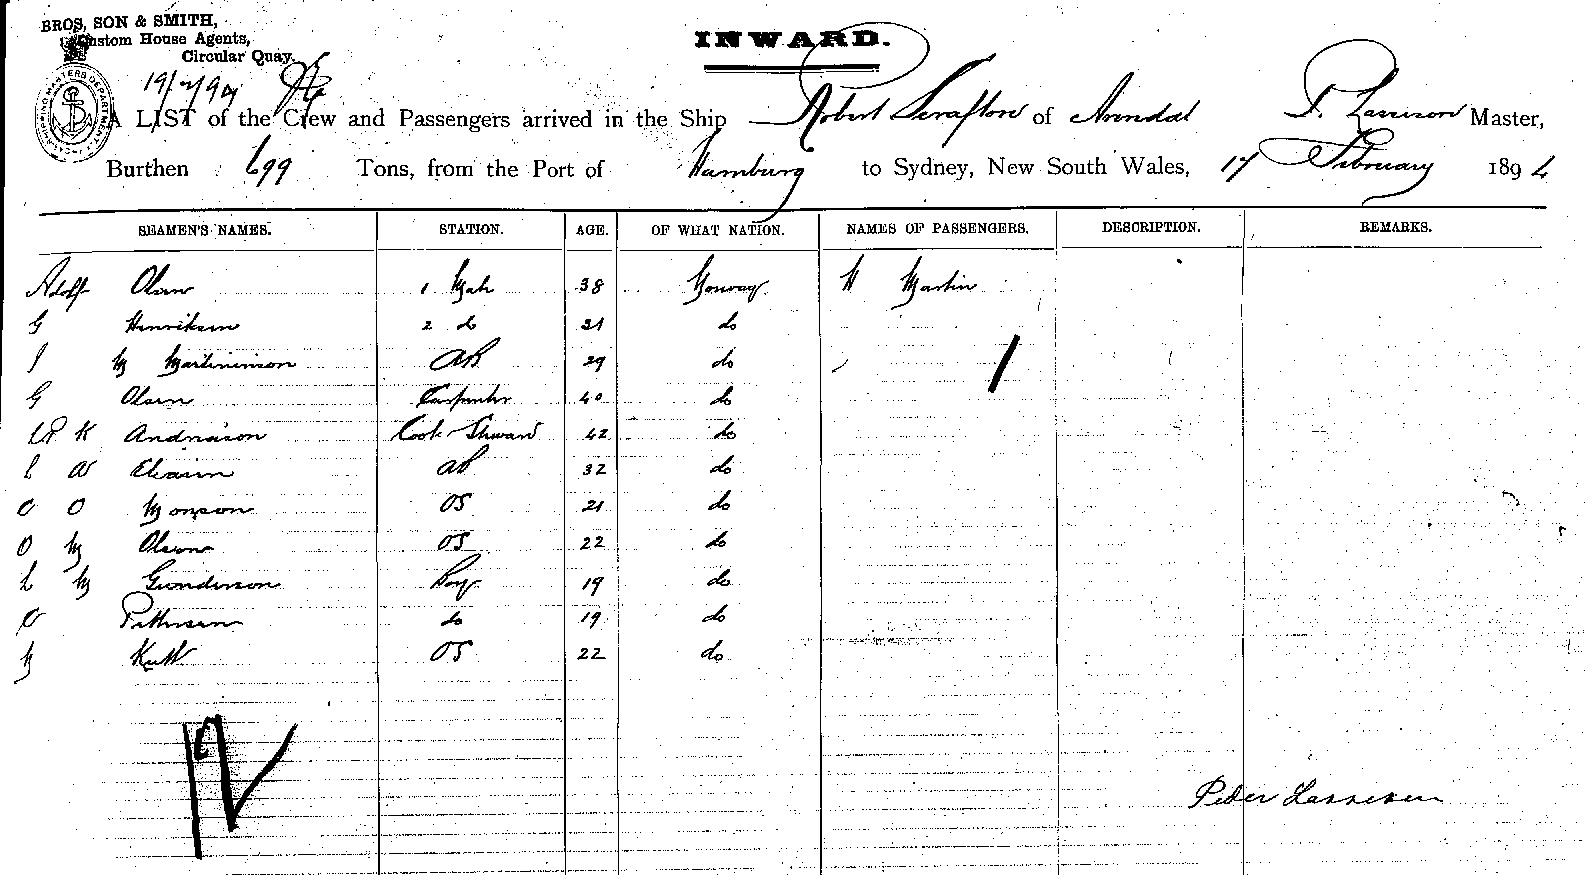 BROS, SON & SMITH,
Custom House Agents,
Circular Quay.
INWARD.
A LIST of the Crew and Passengers arrived in the Ship Robert Scrafton of Arendal P. Lassison Master,
Burthen 699 Tons, from the Port of Hamburg to Sydney, New South Wales, 17 February 1894
SEAMEN'S NAMES. STATION. AGE. OF WHAT NATION. NAMES OF PASSENGERS. DESCRIPTION. REMARKS.
Adolf Olsen 1 Mate 38 Norway M Martin
G Henriksen 2 do 31 do
J M Martininson AB 29 do
G Olsen Carpenter 40 do
K Andriason Cook Steward 42 do
AB 32 do
O O Monson OS 21 do
O M Olson OS 22 do
L M Gunderson Boy 19 do
O Pettersen do 19 do
M OS 22 do
12
Peder Lassesen